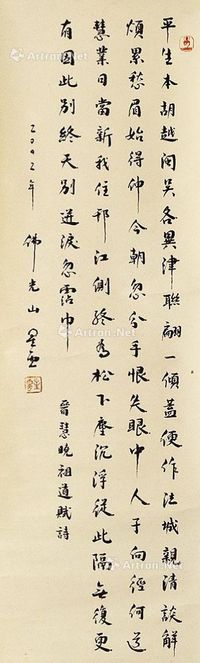 平生本胡越閩吳各異津聯翩一傾蓋便作法城親清談解
煩累愁眉始得伸今朝忽分手恨失眼中人子向徑何道
慧業日當新我住邗江側終為松下塵沉浮從此隔無復更
有因此別終天別迸淚忽霑巾
晉慧曉祖道賦詩
二００二年 佛光山 星雲